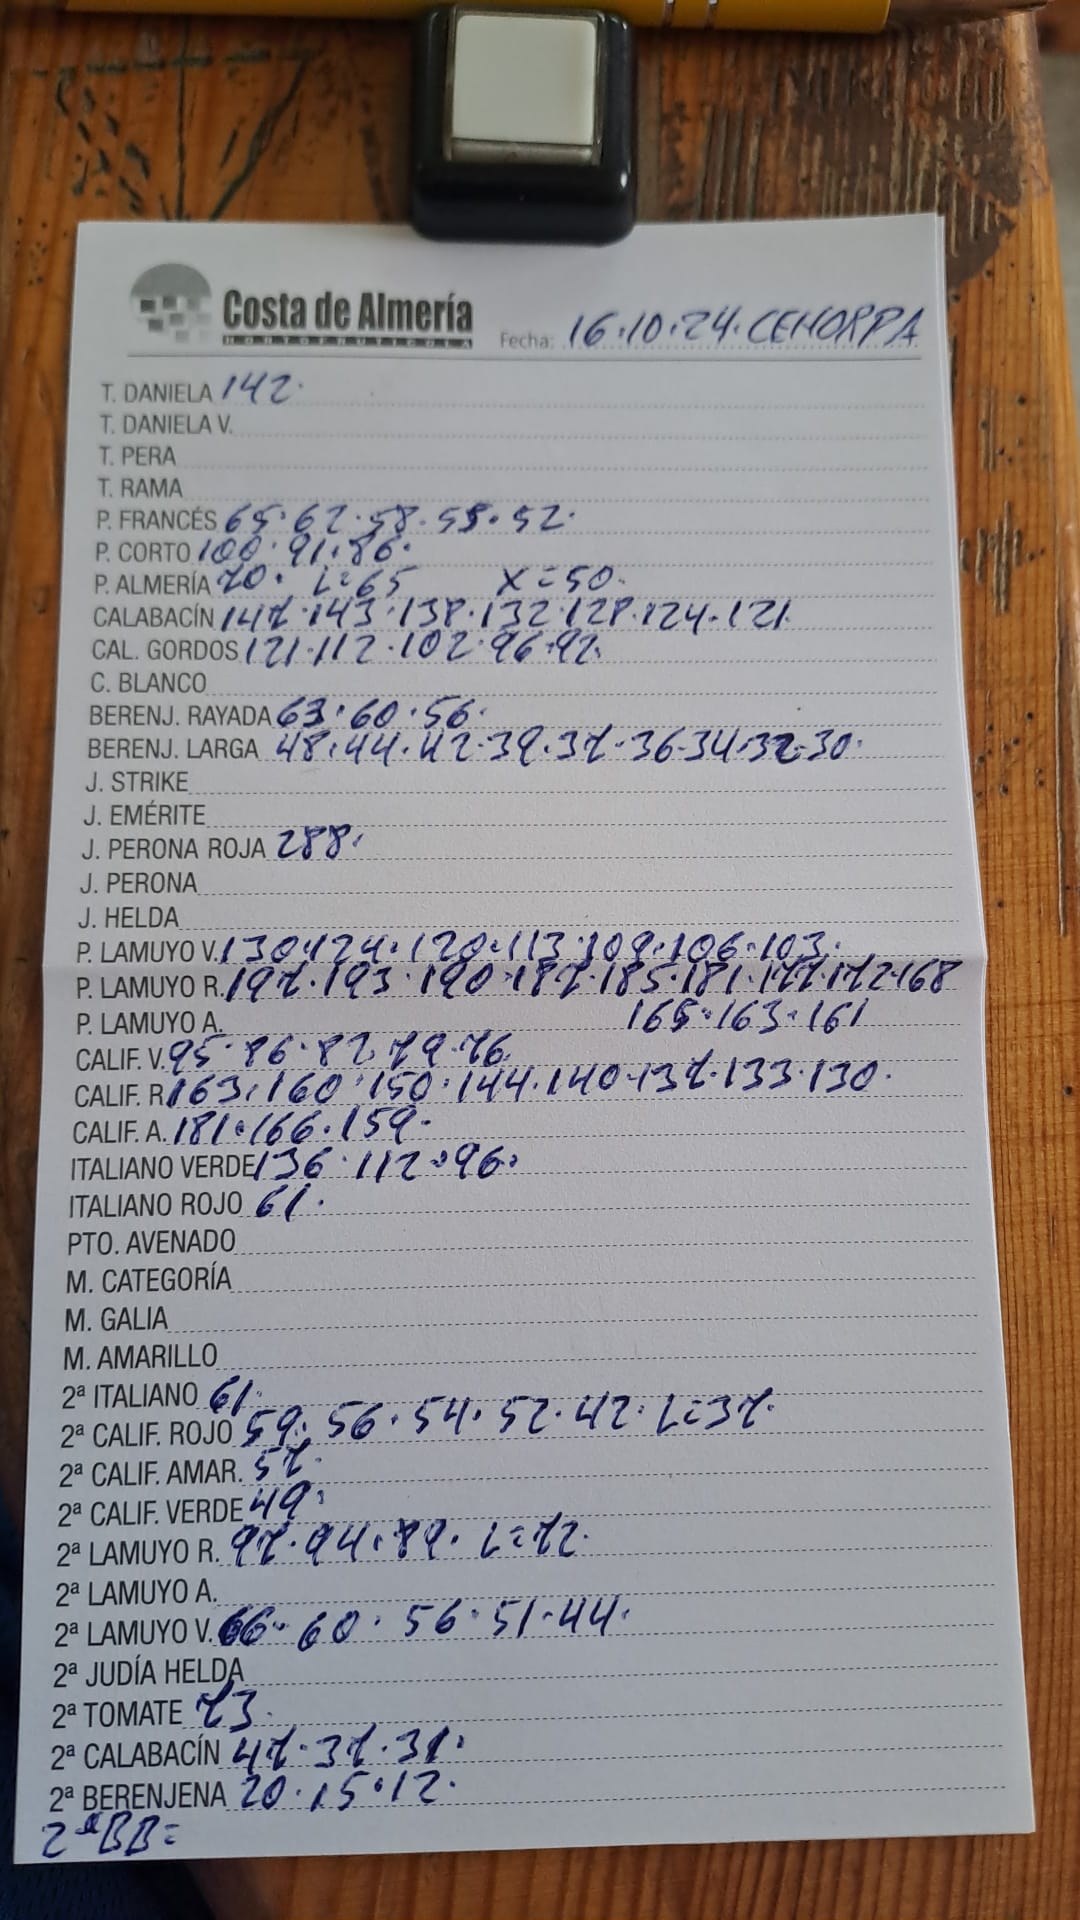 Costa de Almería
HORTOFRUTICOLA
Fecha: 16.10.24. CEHORPA
T. DANIELA 142.
T. DANIELA V.
T. PERA
T. RAMA
P. FRANCÉS 65.62.58.55.52.
P. CORTO 100.91.86.
P. ALMERÍA 70. L=65 X=50.
CALABACÍN 147.143.138.132.128.124.121.
CAL. GORDOS 121.112.102.96.92.
C. BLANCO
BERENJ. RAYADA 63.60.56.
BERENJ. LARGA 48.44.42.39.37.36.34.32.30.
J. STRIKE
J. EMÉRITE
J. PERONA ROJA 288.
J. PERONA
J. HELDA
P. LAMUYO V. 130.124.120.113.109.106.103.
P. LAMUYO R. 197.193.190.187.185.181.177.172.168
P. LAMUYO A. 165.163.161
CALIF. V. 95.86.82.79.76.
CALIF. R. 163.160.150.144.140.137.133.130.
CALIF. A. 181.166.159.
ITALIANO VERDE 136.112.96.
ITALIANO ROJO 61.
PTO. AVENADO
M. CATEGORÍA
M. GALIA
M. AMARILLO
2ª ITALIANO 61.
2ª CALIF. ROJO 59.56.54.52.42. L=37.
2ª CALIF. AMAR. 57.
2ª CALIF. VERDE 49.
2ª LAMUYO R. 97.94.89. L=72.
2ª LAMUYO A.
2ª LAMUYO V. 66.60.56.51.44.
2ª JUDÍA HELDA
2ª TOMATE 73.
2ª CALABACÍN 47.37.31.
2ª BERENJENA 20.15.12.
2ª BB=